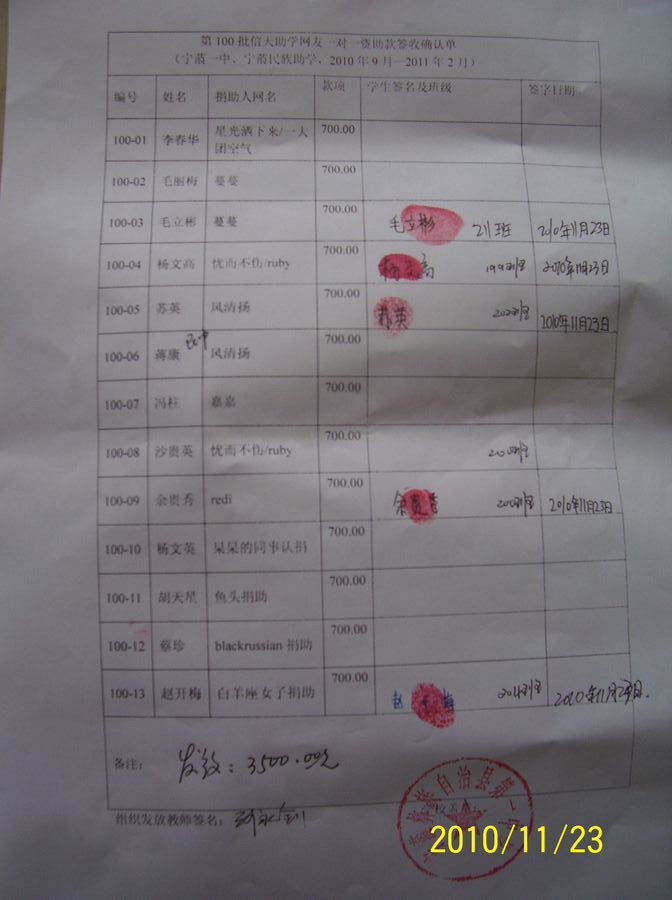 第100批信天助学网友一对一资助款签收确认单
（宁蒗一中、宁蒗民族助学，2010年9月—2011年2月）
编号 姓名 捐助人网名 款项 学生签名及班级 签字日期
100-01 李春华 星光洒下来/一人团空气 700.00
100-02 毛丽梅 蔓蔓 700.00
100-03 毛立彬 蔓蔓 700.00 毛立彬 211班 2010年11月23日
100-04 杨文高 忧而不伤/ruby 700.00 杨文高 199班 2010年11月23日
100-05 苏英 风清扬 700.00 苏英 202班 2010年11月23日
100-06 蒋康 风清扬 700.00
100-07 冯柱 嘉嘉 700.00
100-08 沙贵英 忧而不伤/ruby 700.00
100-09 余贵秀 redi 700.00 余贵秀 200班 2010年11月23日
100-10 杨文英 呆呆的同事认捐 700.00
100-11 胡天星 鱼头捐助 700.00
100-12 蔡珍 blackrussian 捐助 700.00
100-13 赵开梅 白羊座女子捐助 700.00 赵开梅 204班 2010年11月23日.
备注： 发放：3500.00元
组织发放教师签名：
族自治县第一
2010/11/23